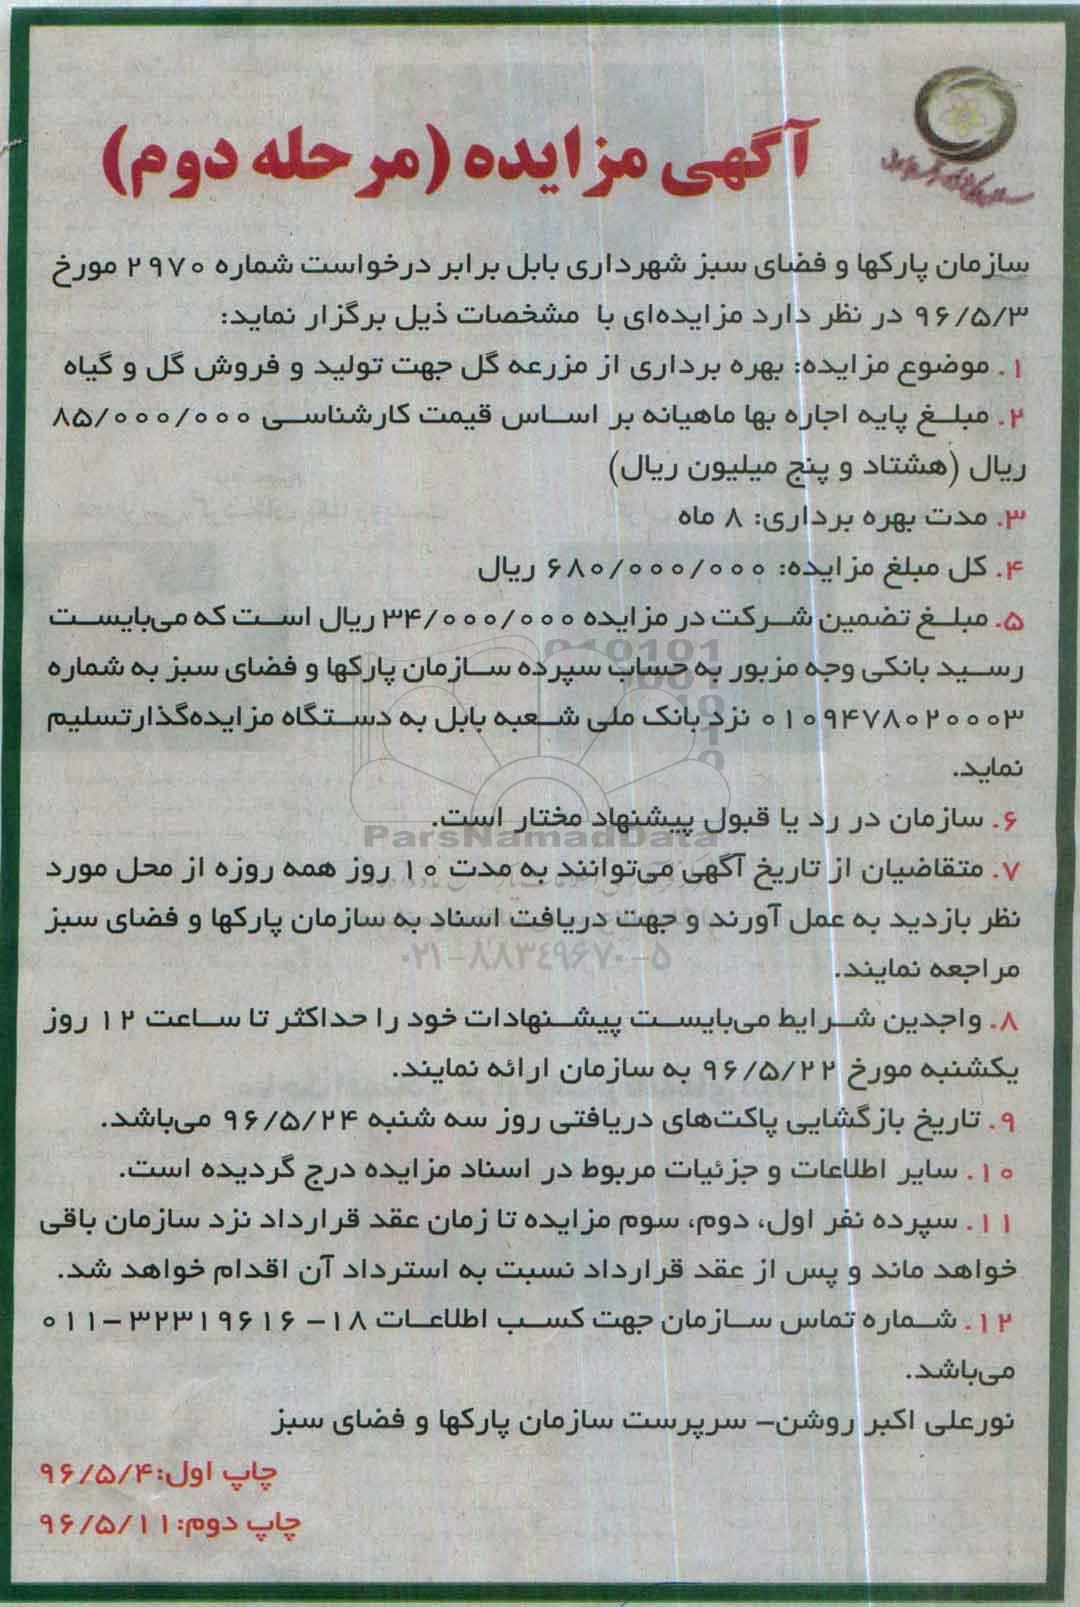 آگهی مزایده (مرحله دوم)
سازمان پارکها و فضای سبز شهرداری بابل برابر درخواست شماره ۲۹۷۰ مورخ
۹۶/۵/۳ در نظر دارد مزایده‌ای با مشخصات ذیل برگزار نماید:
۱. موضوع مزایده: بهره برداری از مزرعه گل جهت تولید و فروش گل و گیاه
۲. مبلغ پایه اجاره بها ماهیانه بر اساس قیمت کارشناسی ۸۵/۰۰۰/۰۰۰
ریال (هشتاد و پنج میلیون ریال)
۳. مدت بهره برداری: ۸ ماه
۴. کل مبلغ مزایده: ۶۸۰/۰۰۰/۰۰۰ ریال
۵. مبلغ تضمین شرکت در مزایده ۳۴/۰۰۰/۰۰۰ ریال است که می‌بایست
رسید بانکی وجه مزبور به حساب سپرده سازمان پارکها و فضای سبز به شماره
۰۱۰۹۴۷۸۰۲۰۰۰۳ نزد بانک ملی شعبه بابل به دستگاه مزایده‌گذار تسلیم
نماید.
۶. سازمان در رد یا قبول پیشنهاد مختار است.
ParsNamadData
۷. متقاضیان از تاریخ آگهی می‌توانند به مدت ۱۰ روز همه روزه از محل مورد
نظر بازدید به عمل آورند و جهت دریافت اسناد به سازمان پارکها و فضای سبز
۰۲۱-۸۸۳۴۹۶۷۰-۵
مراجعه نمایند.
۸. واجدین شرایط می‌بایست پیشنهادات خود را حداکثر تا ساعت ۱۲ روز
یکشنبه مورخ ۹۶/۵/۲۲ به سازمان ارائه نمایند.
۹. تاریخ بازگشایی پاکت‌های دریافتی روز سه شنبه ۹۶/۵/۲۴ می‌باشد.
۱۰. سایر اطلاعات و جزئیات مربوط در اسناد مزایده درج گردیده است.
۱۱. سپرده نفر اول، دوم، سوم مزایده تا زمان عقد قرارداد نزد سازمان باقی
خواهد ماند و پس از عقد قرارداد نسبت به استرداد آن اقدام خواهد شد.
۱۲. شماره تماس سازمان جهت کسب اطلاعات ۱۸- ۳۲۳۱۹۶۱۶-۰۱۱
می‌باشد.
نورعلی اکبر روشن- سرپرست سازمان پارکها و فضای سبز
چاپ اول: ۹۶/۵/۴
چاپ دوم: ۹۶/۵/۱۱